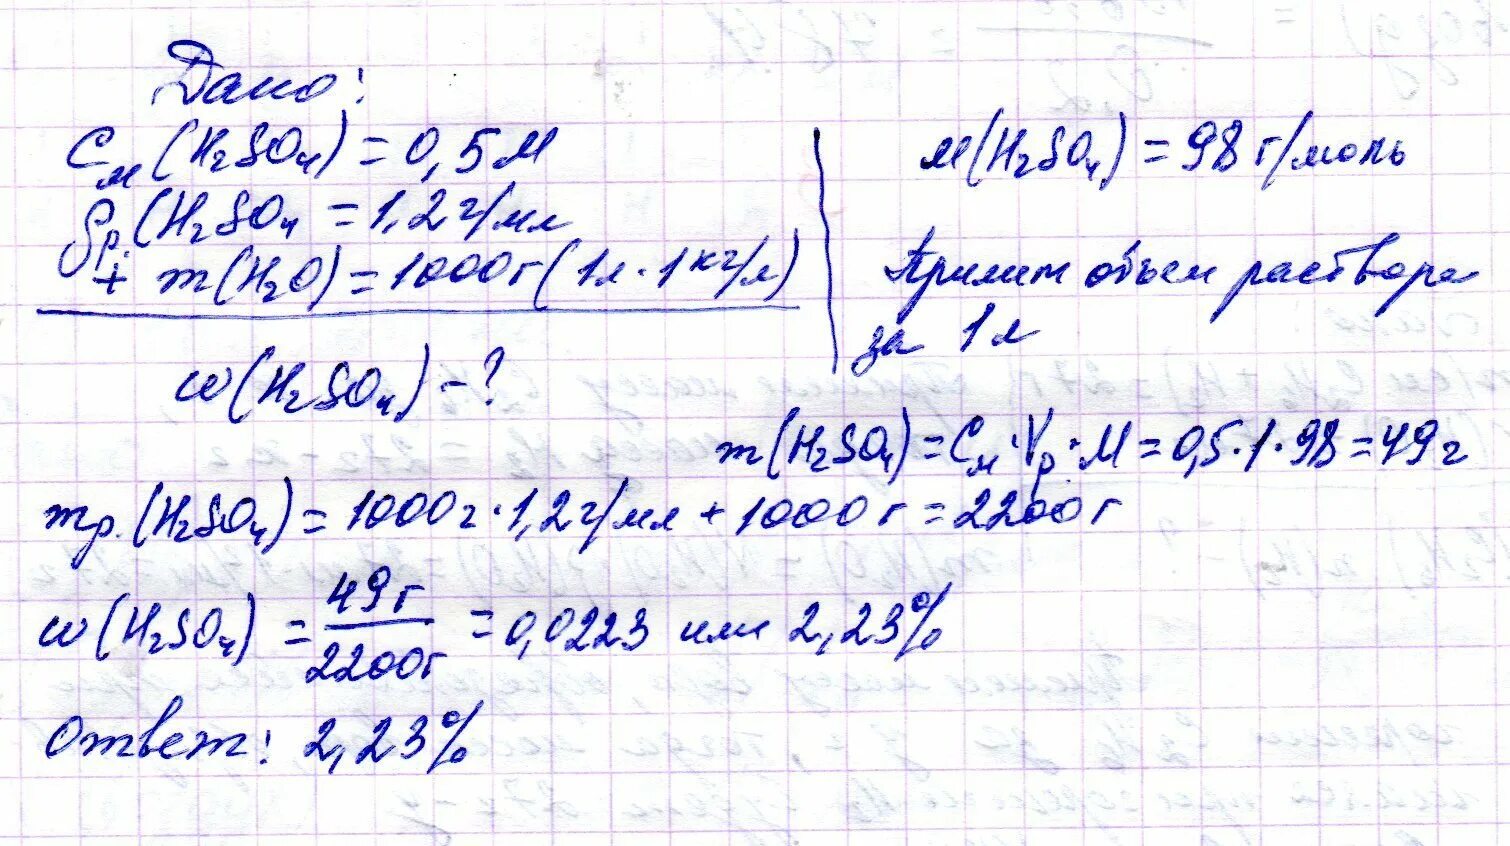 Дано:
Cм(H₂SO₄) = 0,5 М
ρр.(H₂SO₄ = 1,2 г/мл
+ m(H₂O) = 1000 г (1 л · 1 кг/л)
ω(H₂SO₄) - ?
М(H₂SO₄) = 98 г/моль
Примем объем раствора
за 1 л
m(H₂SO₄) = Cм · Vр · М = 0,5 · 1 · 98 = 49 г
mр.(H₂SO₄) = 1000 г · 1,2 г/мл + 1000 г = 2200 г
ω(H₂SO₄) = 49 г / 2200 г = 0,0223 или 2,23%
Ответ: 2,23%